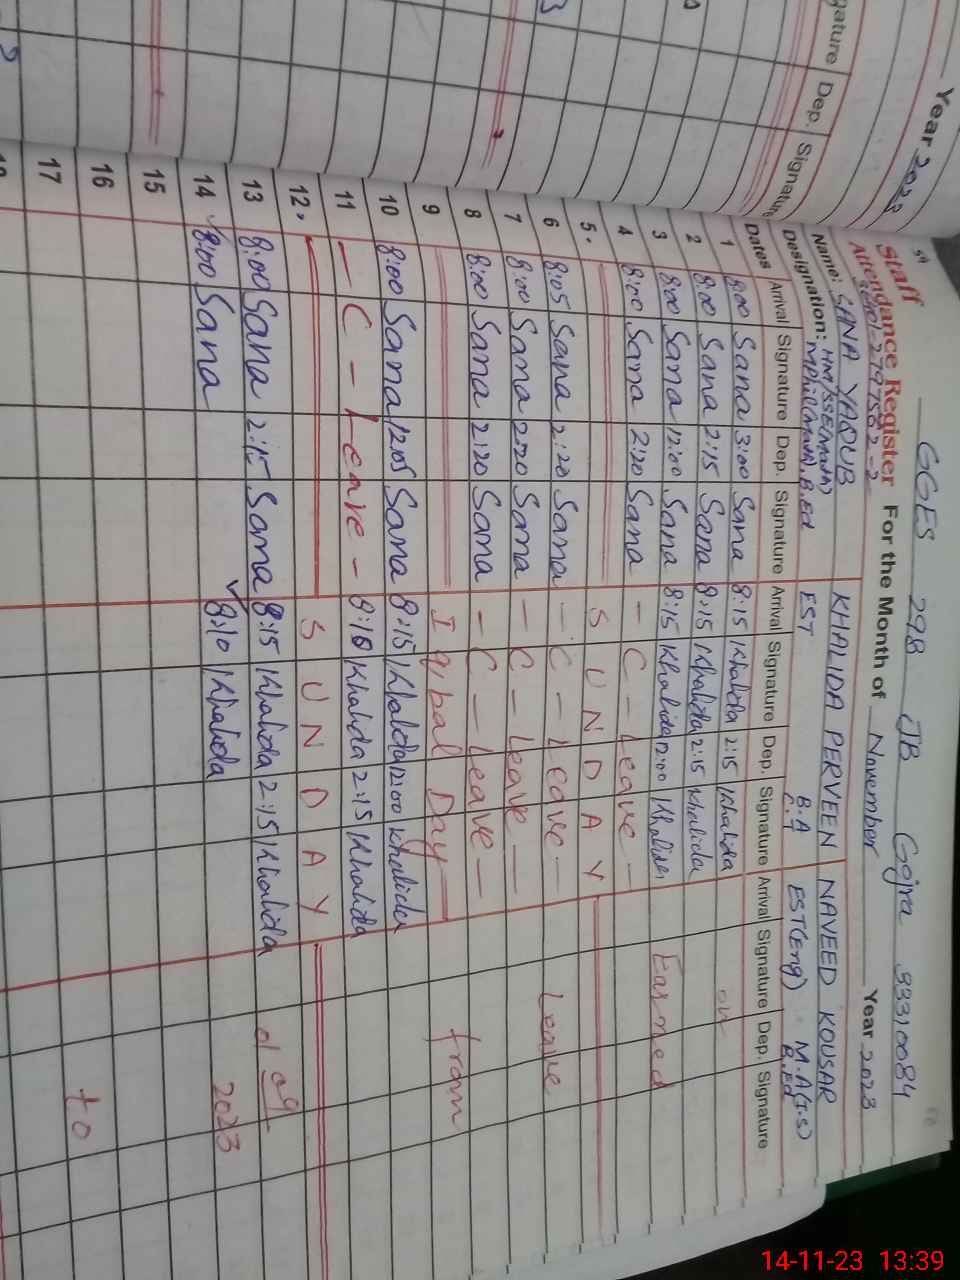 gature Dep. Signature
Year 2023
59
GGES 298 JB Gojra 33310084
Staff
Attendance Register For the Month of November Year 2023
Name: SANA YAQUB KHALIDA PERVEEN NAVEED KOUSAR
Designation: HM/SSE(Math) EST B.A EST(Eng) M.A(I.S)
MPhil(Math), B.Ed C.T B.Ed
Dates Arrival Signature Dep. Signature Arrival Signature Dep. Signature Arrival Signature Dep. Signature
1 8:00 Sana 3:00 Sana 8:15 Khalida 2:15 Khalida on
2 8:00 Sana 2:15 Sana 8:15 Khalida 2:15 Khalida
3 8:00 Sana 12:00 Sana 8:15 Khalida 12:00 Khalida Earned
4 8:00 Sana 2:20 Sana - C - Leave -
5. S U N D A Y
6 8:05 Sana 2:20 Sana - C - Leave - Leave
7 8:00 Sana 2:20 Sana - C - Leave -
8 8:00 Sana 2:20 Sana - C - Leave -
9 Iqbal Day from
10 8:00 Sana 12:05 Sana 8:15 Khalida 12:00 Khalida
11 - C - Leave - 8:10 Khalida 2:15 Khalida
12. S U N D A Y
13 8:00 Sana 2:15 Sana 8:15 Khalida 2:15 Khalida 01 09
14 8:00 Sana 8:10 Khalida 2023
15
16
17 to
14-11-23 13:39